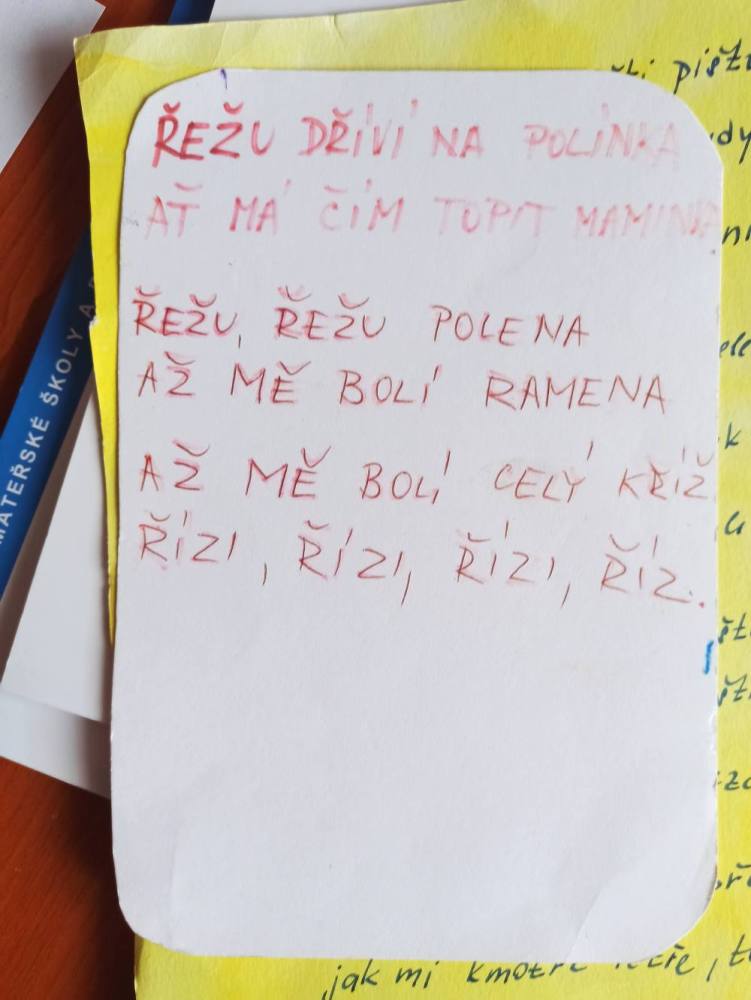 ŘEŽU DŘÍVÍ NA POLÍNKA
AŤ MÁ ČÍM TOPIT MAMINKA
ŘEŽU, ŘEŽU POLENA
AŽ MĚ BOLÍ RAMENA
AŽ MĚ BOLÍ CELÝ KŘÍŽ
ŘÍZI, ŘÍZI, ŘÍZI, ŘÍZ.
MATEŘSKÉ ŠKOLY A
jak mi kmotře